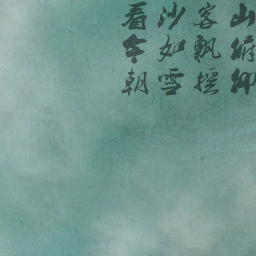 山俯仰
客飘摇
沙如雪
看今朝